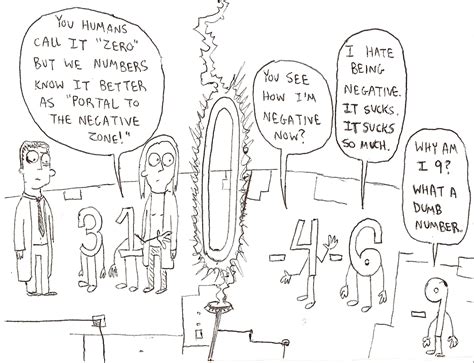 YOU HUMANS
CALL IT "ZERO"
BUT WE NUMBERS
KNOW IT BETTER
AS "PORTAL TO
THE NEGATIVE
ZONE!"
31
YOU SEE
HOW I'M
NEGATIVE
NOW?
I HATE
BEING
NEGATIVE.
IT SUCKS.
IT SUCKS
SO MUCH.
-4
-6
WHY AM
I 9?
WHAT A
DUMB
NUMBER.
-9